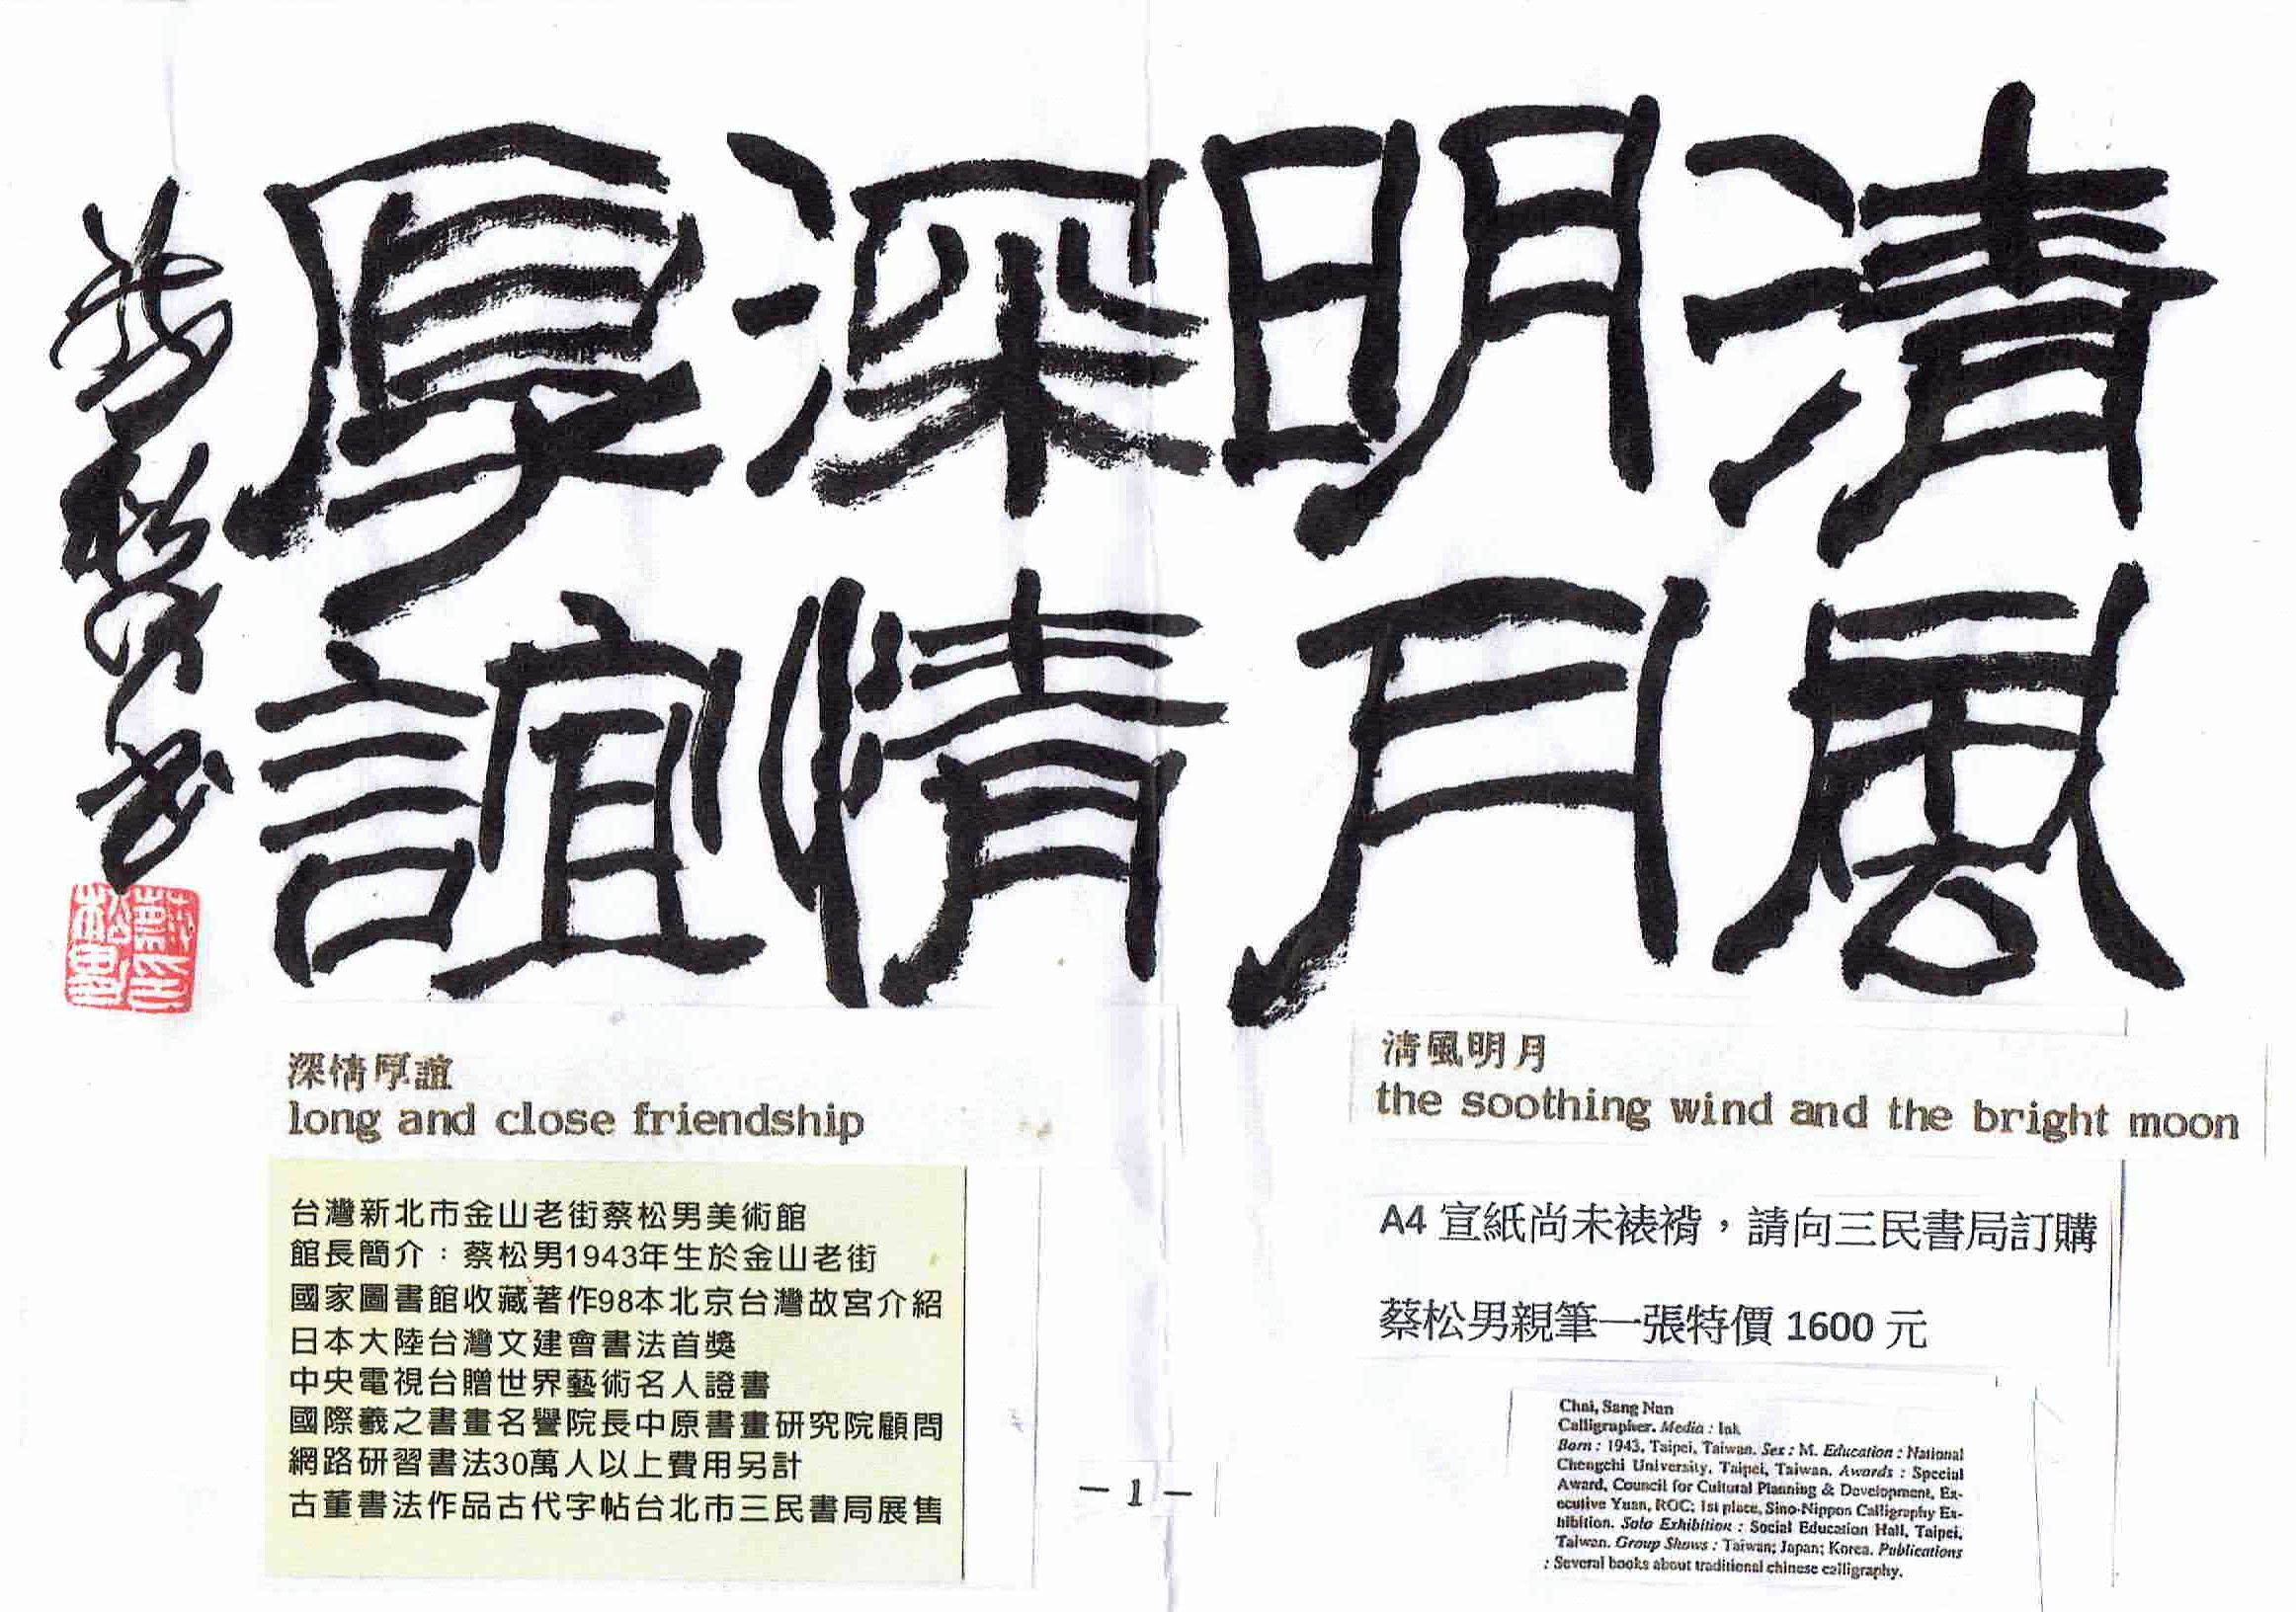 清風
明月
深情
厚誼
蔡松男書
深情厚誼
long and close friendship
台灣新北市金山老街蔡松男美術館
館長簡介：蔡松男1943年生於金山老街
國家圖書館收藏著作98本北京台灣故宮介紹
日本大陸台灣文建會書法首獎
中央電視台贈世界藝術名人證書
國際羲之書畫名譽院長中原書畫研究院顧問
網路研習書法30萬人以上費用另計
古董書法作品古代字帖台北市三民書局展售
清風明月
the soothing wind and the bright moon
A4 宣紙尚未裱褙，請向三民書局訂購
蔡松男親筆一張特價 1600 元
Chai, Sang Nan
Calligrapher. Media : Ink
Born : 1943, Taipei, Taiwan. Sex : M. Education : National
Chengchi University, Taipei, Taiwan. Awards : Special
Award, Council for Cultural Planning & Development, Ex-
ecutive Yuan, ROC; 1st place, Sino-Nippon Calligraphy Ex-
hibition. Solo Exhibition : Social Education Hall, Taipei,
Taiwan. Group Shows : Taiwan; Japan; Korea. Publications
: Several books about traditional chinese calligraphy.
— 1 —